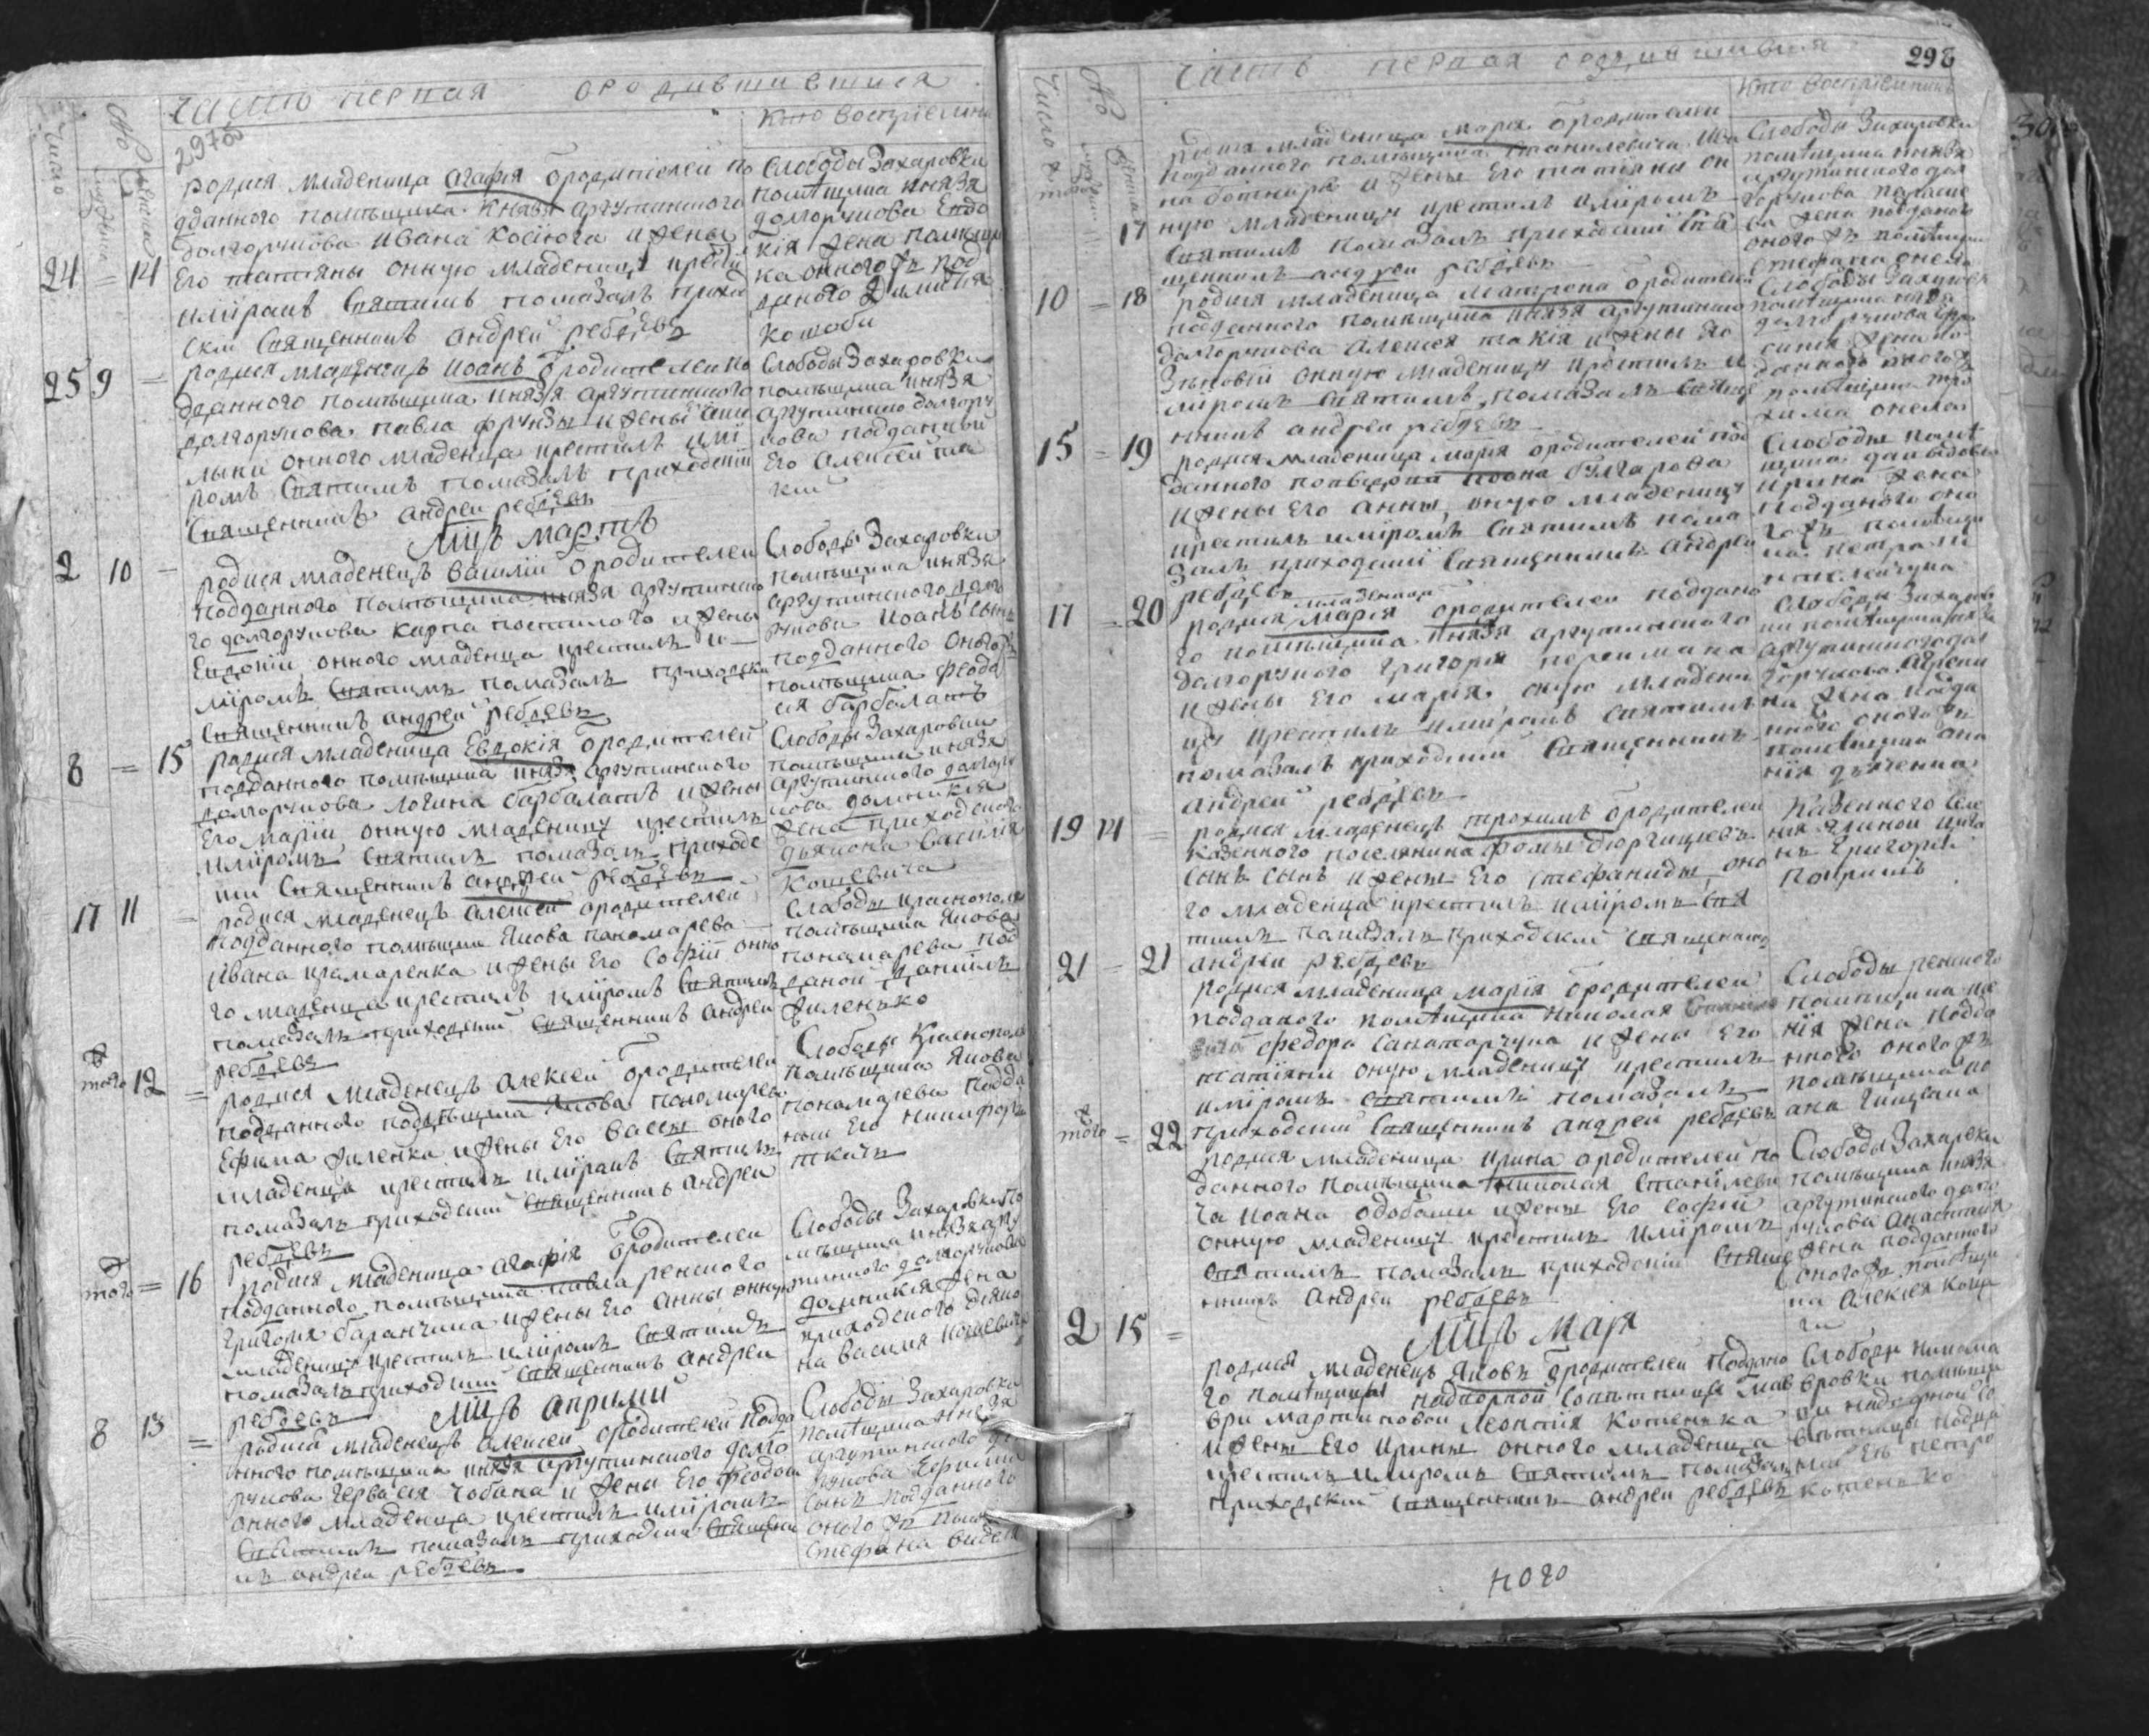 часть первая о родившихся
Число
№
мужеска
женска
Кто восприемни
297об
родися младеница агафiя ѿродителей по
дданного помѣщика князя аргутинского
долгорукова Ивана Косюга и жены
24 = 14 Его татiяны онную младеницу крести
имiромъ Святимъ помазалъ приход
ски Священникъ андрей ребдевъ
Слободы Захаровки
помѣщика князя
долгорукова Евдо
кiя жена помѣщи
ка онного жъ под
даного
Кошоби
25 9 = родися младенецъ иоанъ ѿродителей по
дданного помѣщика князя аргутинского
долгорукова павла фрунзы и жены
онного младенца крестилъ имi
ромъ Святимъ помазалъ приходскiй
Священникъ андрей ребдевъ
Слободы Захаровки
помѣщика князя
аргутинского долгору
кова подданный
Его Алексей та
кiй
Мцъ мартъ
2 10 – родися младенецъ василiй ѿродителей
подданного помѣщика князя аргутинско
го долгорукова карпа постилого и жены
Евдокiи онного младенца крестилъ и
мiромъ Святимъ помазалъ приходски
Священникъ андрей ребдевъ
Слободы Захаровки
помѣщика князя
аргутинского долго
рукова Иоанъ сынъ
подданного оногожъ
помѣщика феодо
сiя барбалатъ
8 = 15 родися младеница Евдокiя ѿродителей
подданного помѣщика князя аргутинского
долгорукова логина барбалатъ и жены
Его марiи онную младеницу крестилъ
имiромъ Святимъ помазалъ приходс
кiй Священникъ андрей ребдевъ
Слободы Захаровки
помѣщика князя
Аргутинского долгору
кова домникiя
жена приходского
дьякона василiя
Кошевича
17 11 = родися младенецъ алексей ѿродителей
подданного помѣщика Якова понамарева
Ивана крамаренка и жены Его Софiи онно
го младенца крестилъ имiромъ Святимъ
помазалъ приходский Священникъ андрей
ребдевъ
Слободы краснополя
помѣщика Якова
понамарева под
даной данiилъ
диленько
тогожъ 12 = родися младенецъ алексей ѿродителей
подданного помѣщика Якова пономарева
Ефима диленка и жены Его Васы оного
младенца крестилъ имiромъ Святимъ
помазалъ приходскiй Священникъ андрей
ребдевъ
Слободы Краснополя
помѣщика Якова
понамарева подда
ный Его никифоръ
ткачъ
тогожъ = 16 родися младеница агафiя ѿродителей
подданного помѣщика павла ренского
Григорiя баранчика и жены Его Анны онную
младеницу крестилъ имiромъ Святимъ
помазалъ приходскiй Священникъ андрей
ребдевъ
Слободы Захаровки по
мѣщика князя аргу
тинского долгорукова
домникiя жена
приходского дiяко
на василiя Кошевича
Мцъ априлiй
8 13 = родися младенецъ алексей ѿродителей подда
нного помѣщика князя аргутинского долго
рукова гервасiя Чобана и жены Его феодоси
онного младенца крестилъ имiромъ
Святимъ помазалъ приходскiй Священи
къ андрей ребдевъ
Слободы Захаровки
помѣщика князя
аргутинского до
рукова Ефимiй
сынъ подданного
оного жъ помѣ
Стефана
298
Число
№
часть первая о родившихся
Кто восприемникъ
тогожъ 17 родися младеница марiя ѿродителей
подданного помѣщика станилевича Ива
на ботнаря и жены Его татiяны он
ную младеницу крестилъ имiромъ
Святимъ помазалъ приходскiй Свя
щенникъ андрей ребдевъ
Слободы Захаровки
помѣщика князя
аргутинского дол
горукова параске
ва жена подданого
оного жъ помѣщика
Стефана онела
10 = 18 родися младеница Матрона ѿродителей
подданного помѣщика князя аргутинского
долгорукова алексея такiя и жены Его
Зѣновiи онную младеницу крестилъ и
мiромъ Святимъ помазалъ Свяще
нникъ андрей ребдевъ
Слободы Захаровки
помѣщика князя
долгорукова Ефро
синiя жена по
данного оногожъ
помѣщика тро
хима онела
15 = 19 родися младеница марiя ѿродителей под
данного иоана булгарова
и жены Его анны, оную младеницу
крестилъ имiромъ Святимъ пома
залъ приходскiй Священникъ андрей
ребдевъ
Слободы помѣ
щика давидовича
ирина жена
подданого оно
гожъ помѣщи
ка петра
17 = 20 родися младеница марiя ѿродителей поддано
го помѣщика князя аргутинского
долгорукого григорiя перешмана
и жены Его марiя оную младени
цу крестилъ имiромъ Святимъ
помазалъ приходскiй Священникъ
андрей ребдевъ
Слободы Захаров
ки помѣщика князя
аргутинского дол
горукова Агрепи
на жена подда
нного оногожъ
помѣщика она
нiя дяченка
19 14 = родися младенецъ трохимъ ѿродителей
казенного поселянина фомы
сынъ и жены Его Стефаниды, оно
го младенца крестилъ имiромъ Свя
тимъ помазалъ приходскiй Священикъ
андрей ребдевъ
Казенного селе
нiя Григорiй
21 = 21 родися младеница марiя ѿродителей
подданого помѣщика николая Станиле
вича федора Сапатарчука и жены Его
татiяни оную младеницу крестилъ
имiромъ Святимъ помазалъ
приходскiй Священникъ андрей ребдевъ
Слободы ренского
помѣщика
жена подда
нного оногожъ
помѣщика ио
ана гинцана
тогожъ = 22 родися младеница ирина ѿродителей по
данного помѣщика николая станилеви
ча иоана одобаши и жены Его софiи
онную младеницу крестилъ имiромъ
Святимъ помазалъ приходскiй Свяще
нникъ андрей ребдевъ
Слободы Захаровки
помѣщика князя
аргутинского долго
рукова Анастасiя
жена подданного
оногожъ помѣщи
ка алексея
Мцъ Маiя
2 15 = родися младенецъ Яковъ ѿродителей поддано
го помѣщицы надворной Совѣтници
Мартиновой леонтiя котенька
и жены Его ирины онного младенца
крестилъ имiромъ Святимъ помазалъ
приходскiй Священникъ андрей ребдевъ
Слободы никола
вровки помѣщи
ци надворной Со
вѣтници подда
ный Еѣ петро
котенько